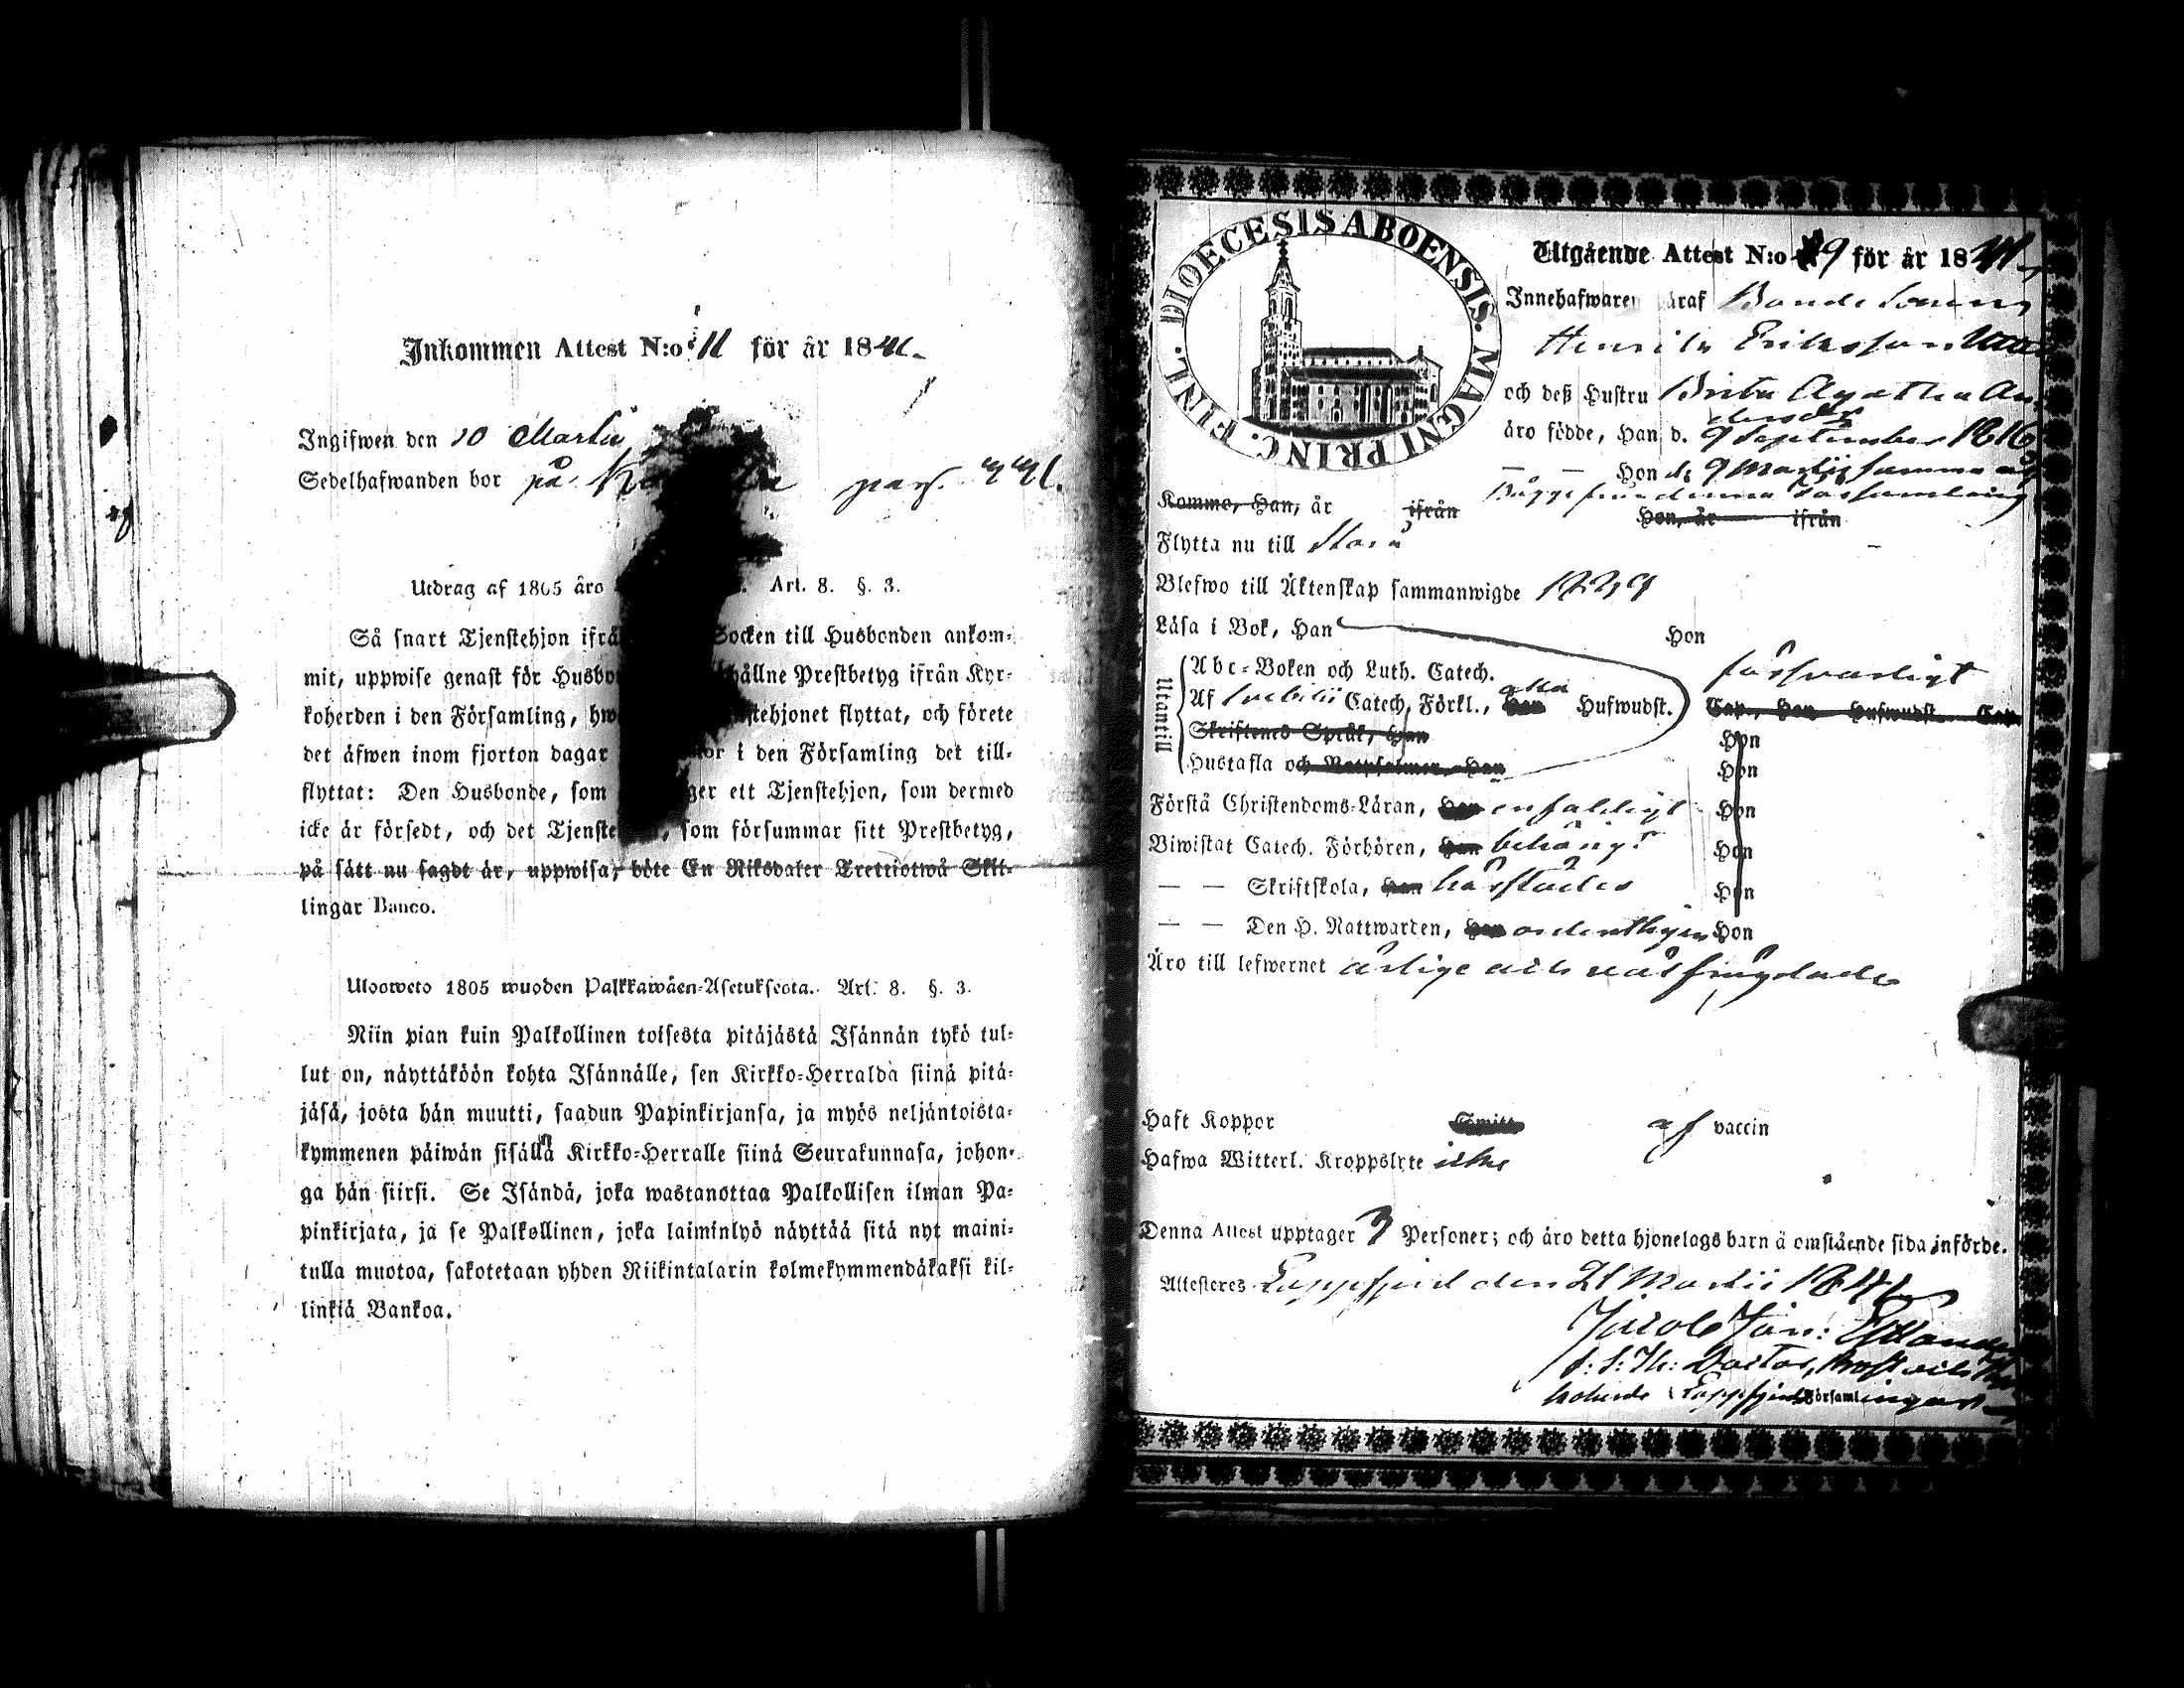 Inkommen Attest N:o 11 för år 1841.
Ingifwen den 10 Martii
Sedelhafwanden bor på pag. 441.
Utdrag af 1805 års Art. 8. §. 3.
Så snart Tjenstehjon ifrå Socken till Husbonden ankom-
mit, uppwise genast för Husbo hållne Prestbetyg ifrån Kyr-
koherden i den Församling, hw stehjonet flyttat, och förete
det äfwen inom fjorton dagar i den Församling det till-
flyttat: Den Husbonde, som ger ett Tjenstehjon, som dermed
icke är försedt, och det Tjenste , som försummar sitt Prestbetyg,
på sätt nu sagdt är, uppwisa, böte En Riksdaler Trettiotwå Skil-
lingar Banco.
Ulosweto 1805 wuoden Palkkawäen-Asetuksesta. Art. 8. §. 3.
Niin pian kuin Palkollinen toisesta pitäjästä Isännän tykö tul-
lut on, näyttäköön kohta Isännälle, sen Kirkko-Herralda siinä pitä-
jäsä, josta hän muutti, saadun Papinkirjansa, ja myös neljäntoista-
kymmenen päiwän sisällä Kirkko-Herralle siinä Seurakunnasa, johon-
ga hän siirsi. Se Isändä, joka wastanottaa Palkollisen ilman Pa-
pinkirjata, ja se Palkollinen, joka laiminlyö näyttää sitä nyt maini-
tulla muotoa, sakotetaan yhden Riikintalarin kolmekymmendäkaksi kil-
linkiä Bankoa.
DIOECESIS ABOENSIS. MAGNI PRINC. FINL.
Utgående Attest N:o 9 för år 1841
Innehafwaren häraf Bonde Sonen
Henrik Eriksson
och deß Hustru Brita Agatha An-
dersdr
äro födde, Han d. 9 September 1816
— — Hon d. 9 Martii samma år
Bägge från denna Församling
Komme, Han, år ifrån Hon, år ifrån
Flytta nu till Storå
Blefwo till Äktenskap sammanwigde 1839
Läsa i Bok, Han Hon
Utantill
Abc-Boken och Luth. Catech. försvarligt
Af Svebilii Catech, Förkl., Han alla Hufwudst. Cap., Hon Hufwudst. Cap.
Skriftenes Språk, Han Hon
Hustafla och Nattpsalmer, Han Hon
Förstå Christendoms-Läran, Han enfaldigt Hon
Biwistat Catech. Förhören, Han behörigt Hon
— — Skriftskola, Han härstädes Hon
— — Den H. Nattwarden, Han ordentligen Hon
Äro till lefwernet ärlige och välfrägdade
Haft Koppor Smitt af vaccin
Hafwa Witterl. Kroppslyte icke
Denna Attest upptager 3 Personer; och äro detta hjonelags barn å omstående sida införde.
Attesteres Lappfjerd den 21 Martii 1841
Jacob Jon:
Doctor, Prost och
koherde i Lappfjerds Församlingar